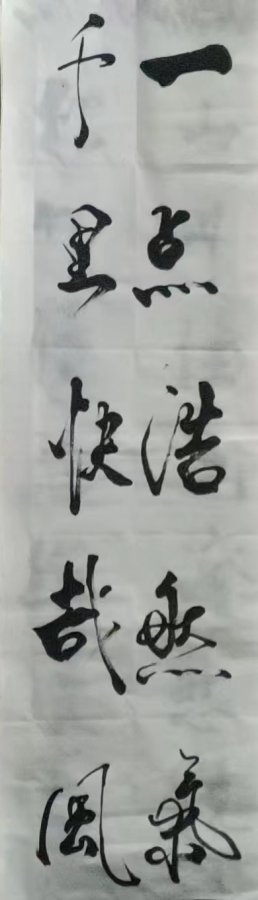 一点浩然氣
千里快哉風